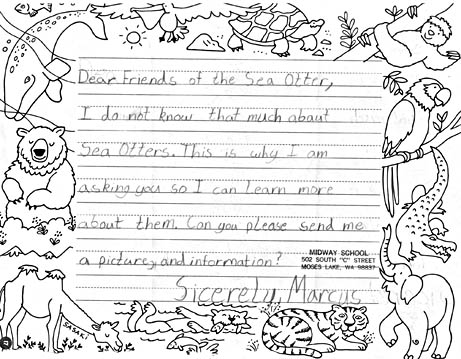 Dear Friends of the Sea Otter,
I do not know that much about
Sea Otters. This is why I am
asking you so I can learn more
about them. Can you please send me
a picture, and information?
MIDWAY SCHOOL
502 SOUTH "C" STREET
MOSES LAKE, WA 98837
Sicerely, Marcus
SASAKI